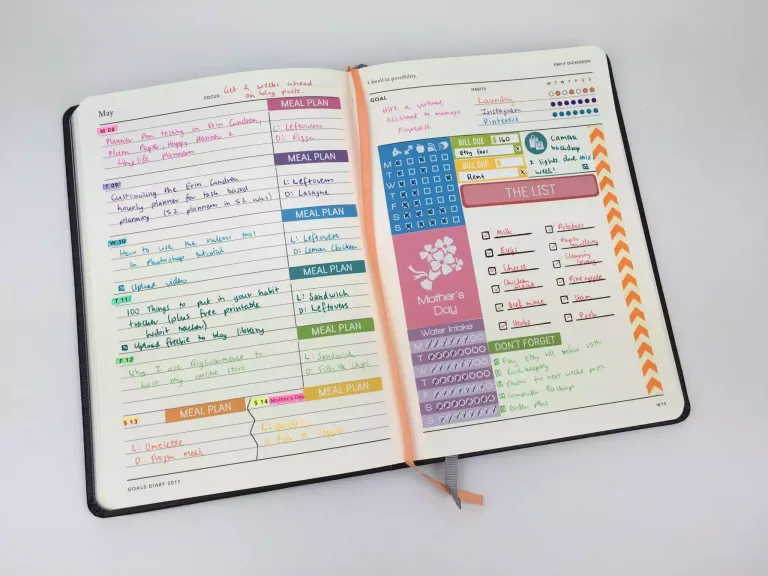 May
FOCUS: Get 2 weeks ahead
on blog posts.
M 08
Planner Pen testing in Erin Condren,
Plum Paper, Happy Planner &
Limelife Planners
MEAL PLAN
L: Leftovers
D: Pizza
T 09
Customizing the Erin Condren
hourly planner for task based
planning (52 planners in 52 wks)
MEAL PLAN
L: Leftovers
D: Lasagne
W 10
How to use the rulers tool
in Photoshop tutorial
Upload video
MEAL PLAN
L: Leftovers
D: Lemon Chicken
T 11
100 Things to put in your habit
tracker (plus free printable
habit tracker)
Upload freebie to blog library
MEAL PLAN
L: Sandwich
D: Leftovers
F 12
Why I use
to
host my online store
MEAL PLAN
L: Sandwich
D:
S 13
MEAL PLAN
L: Omelette
D: Frozen Meal
S 14 Mother's Day
MEAL PLAN
L:
D:
GOALS DIARY 2017
I dwell in possibility.
EMILY DICKINSON
GOAL
Hire a virtual
assistant to manage
Pinterest.
HABITS
M T W T F S S
Laundry
Instagram
Pinterest
M
T
W
T
F
S
S
BILL DUE $ 160
Etsy fees X
BILL DUE $
Rent
Camera
backdrop
& lights due this
week!
THE LIST
Milk
Eggs
Cheese
Chicken
Beef mince
Herbs
Potatoes
Paper
Laundry
Pineapple
Ham
Pork
Mother's
Day
Water Intake
M
T
W
T
F
S
S
DON'T FORGET
Pay Etsy bill before 15th
Bookkeeping
Photos for next weeks posts
Computer Backup
Order pens
W19